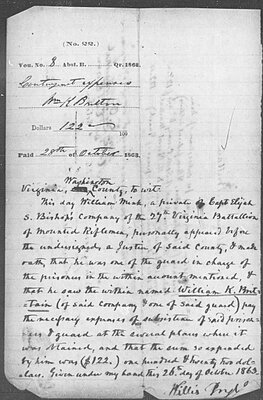 (No. 5252.)
Vou. No. 8 Abst. B. Qr. 1863.
Contingent expenses
Wm K Britton
Dollars 122 100
Paid 28th of October 1863.
Washington
Virginia, County, to wit:
This day William Mink, a private of Capt Elijah
S. Bishop's Company of the 27th Virginia Battallion
of Mounted Riflemen, personally appeared before
the undersigned, a Justice of said County, & made
oath that he was one of the guard in charge of
the prisoners in the within account mentioned, &
that he saw the within named William K. Brit-
tain (of said company & one of said guard) pay
the necessary expenses of subsistence of said prison-
ers & guard at the several places where it
was obtained, and that the sum so expended
by him was ($122.) one hundred & twenty two dol-
lars. Given under my hand this 28th day of October 1863.
Willis